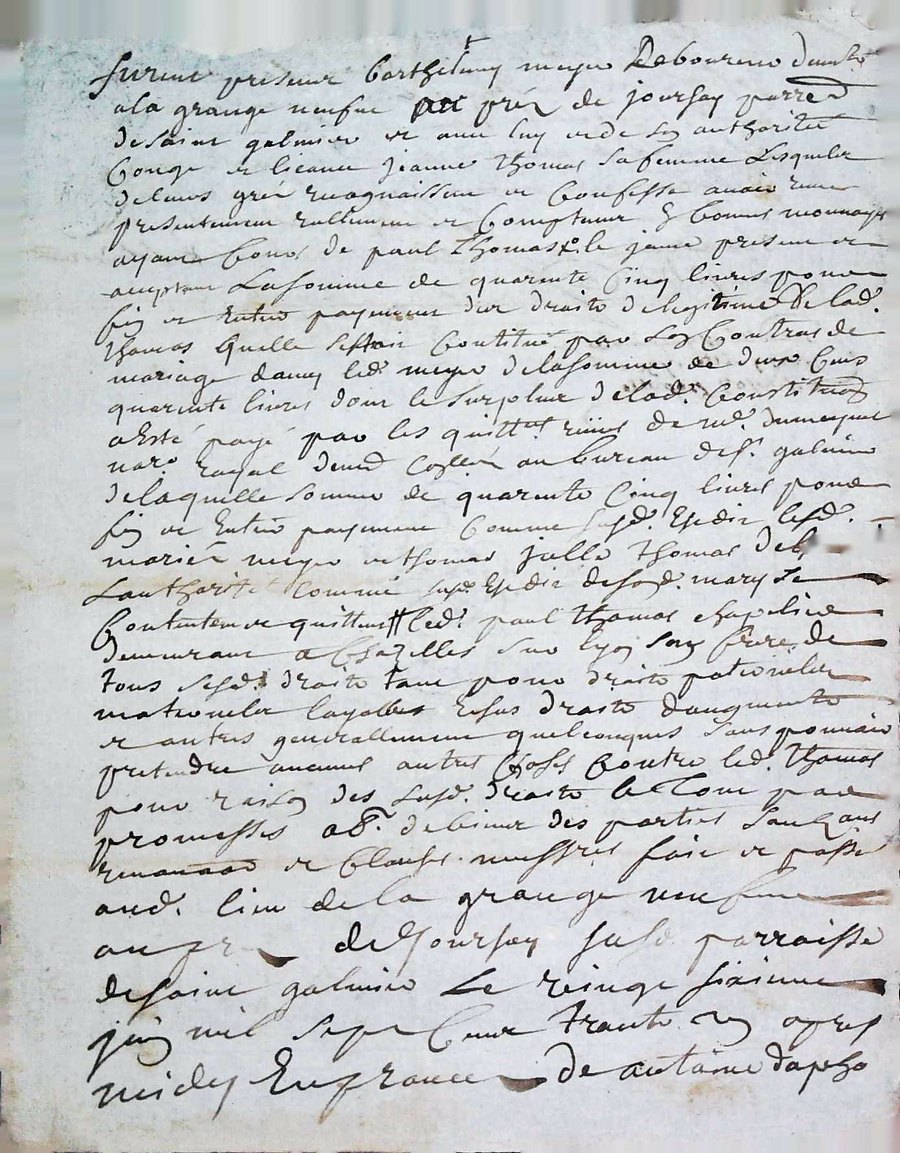 furent presents barthelemy meyer Laboureur demt
a la grange neufue pres de joursay parroe
de saint galmier et avec luy et de son authorité
Congé et licance jeanne Thomas sa femme Lesquels
de leurs grés recognaissent et Confesse avoir receu
presentement reallement et Comptant en bonnes monnoyes
ayant Cours de paul Thomas le jeune present et
acceptant La somme de quarente Cinq livres pour
fin et Entier payement des droits de legitime de lad.
Thomas quelle sestoit Constitué par son Contrat de
mariage avec led. meyer de la somme de deux Cens
quarente livres dont le surplus de lad. Constitution
a Esté payé par les quittes reçues de me.
nore Royal au bureau de st. galmier
de laquelle somme de quarente Cinq livres pour
fin et Entier payement Comme susd. Est dit lesd.
mariés meyer et thomas jcelle thomas de
Lauthorité Comme susd. Est dit de sond. mary se
Contentent et quittent led. paul thomas chapelier
demeurant a Chazelles sur lyon son frere de
tous sesd. droits tant pour droits paternels
maternels layolles Essus droits daugments
et autres generallement quelconques sans pouvoir
pretendre aucunes autres Choses Contre led. thomas
pour raison des susd. droits le tout par
promesses obon. de biens des parties
renonaon et Clauses necessres fait et passé
aud. lieu de la grange neufue
au pres de Joursay susd. parroisse
de saint galmier Le vingt sixieme
juin mil sept Cent trante un apres
midy En presance de antoine dapho